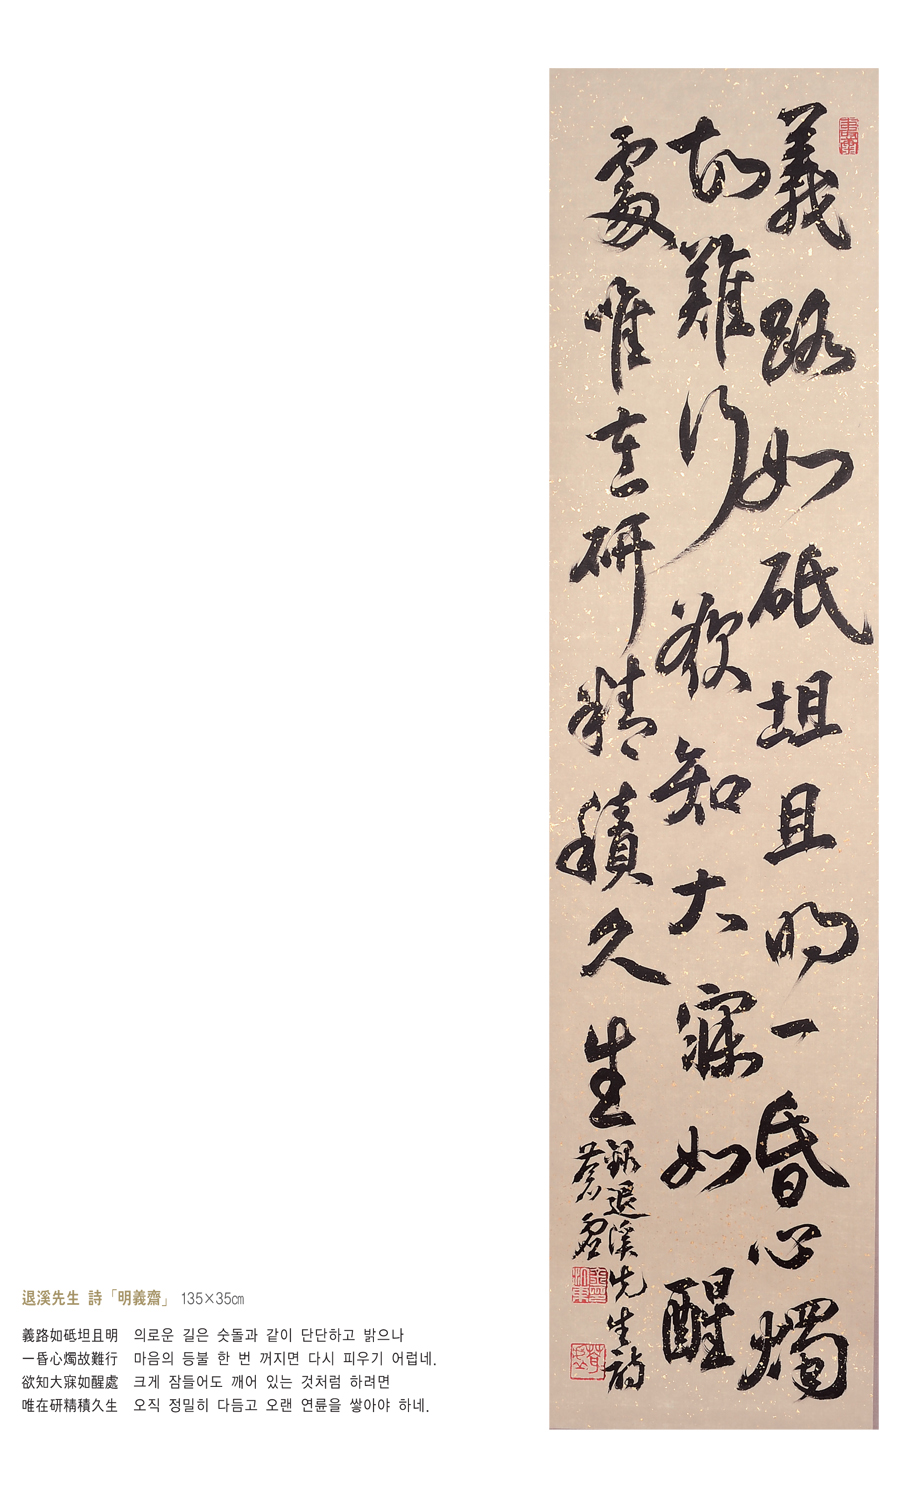 義路如砥坦且明一昏心燭
故難行欲知大寐如醒
處唯在研精積久生
錄退溪先生詩
蒼虛
退溪先生 詩「明義齋」 135×35㎝
義路如砥坦且明 의로운 길은 숫돌과 같이 단단하고 밝으나
一昏心燭故難行 마음의 등불 한 번 꺼지면 다시 피우기 어렵네.
欲知大寐如醒處 크게 잠들어도 깨어 있는 것처럼 하려면
唯在研精積久生 오직 정밀히 다듬고 오랜 연륜을 쌓아야 하네.